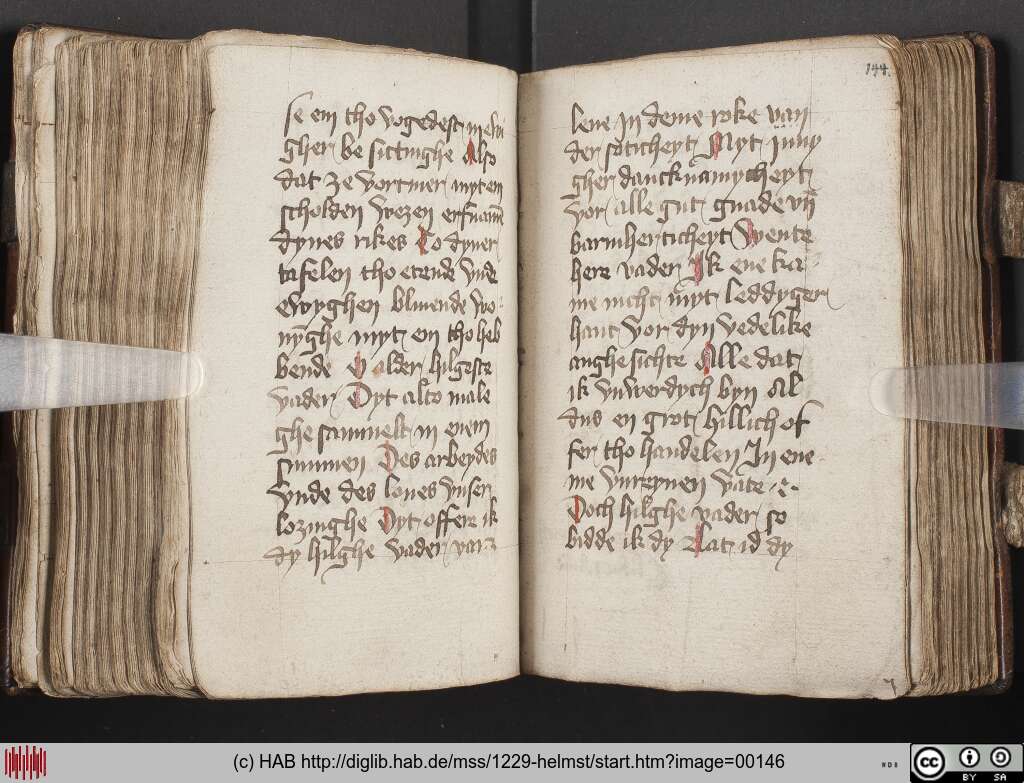 se em tho vogedest in ewi
gher besittinghe Also
dat ze vortmer myt em
scholden wezen erfname
dynes rikes To dyner
tafelen tho etende vnde
ewyghen bliuende wo
nynghe myt em tho heb
bende O alder hilgeste
vader Dyt altomale
ghesammelt in enem
summen Des arbeydes
vnde des lones vnser
lozinghe Dyt offere ik
dy hilghe vader van
144.
leue In deme roke van
der soticheyt Myt inny
gher dancknamycheyt
vor alle gut gnade vn̄
barmherticheyt Wente
here vader Ik ene ka
me nicht myt leddyger
hant vor dyn vedelike
anghesichte Alle dat
ik vnwerdych byn Al
dus en grot hillich of
fer tho handelen In ene
me vnreynen vate
Doch hilghe vader so
bidde ik dy Lat id dy
(c) HAB http://diglib.hab.de/mss/1229-helmst/start.htm?image=00146
WDB
CC
BY SA